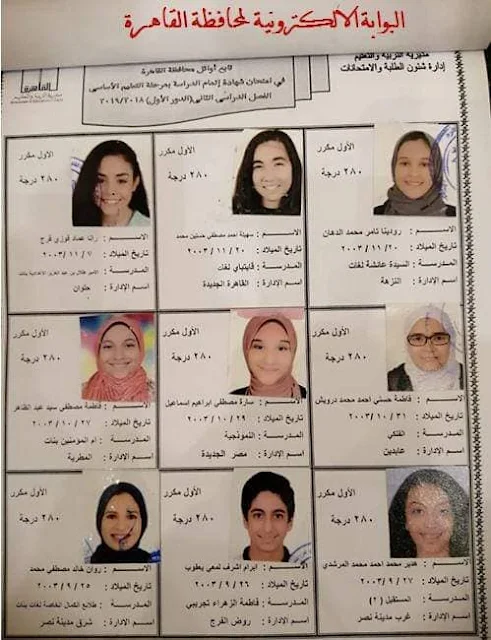 البوابة الألكترونية لمحافظة القاهرة
مديرية التربية والتعليم
إدارة شئون الطلبة والامتحانات
تابع أوائل محافظة القاهرة
في امتحان شهادة إتمام الدراسة بمرحلة التعليم الأساسى
الفصل الدراسى الثانى (الدور الأول) ٢٠١٩/٢٠١٨
القاهرة
الأول مكرر
٢٨٠ درجة
الاســـم : رودينا تامر محمد الدهان
تاريخ الميلاد : ٢٠ / ١١ / ٢٠٠٣
المدرسـة : السيدة عائشة لغات
اسم الإدارة : النزهة
الأول مكرر
٢٨٠ درجة
الاســـم : سهيلة احمد مصطفى حسنين محمد
تاريخ الميلاد : ٢٠ / ١١ / ٢٠٠٣
المدرسـة : قايتباي لغات
اسم الإدارة : القاهرة الجديدة
الأول مكرر
٢٨٠ درجة
الاســـم : رانا عماد فوزي فرج
تاريخ الميلاد : ٧ / ١١ / ٢٠٠٣
المدرسـة : الامير طلال بن عبد العزيز الاعدادية بنات
اسم الإدارة : حلوان
الأول مكرر
٢٨٠ درجة
الاســـم : فاطمة حسني احمد محمد درويش
تاريخ الميلاد : ٣١ / ١٠ / ٢٠٠٣
المدرسـة : الفلكي
اسم الإدارة : عابدين
الأول مكرر
٢٨٠ درجة
الاســـم : سارة مصطفي ابراهيم إسماعيل
تاريخ الميلاد : ٢٩ / ١٠ / ٢٠٠٣
المدرسـة : النموذجية
اسم الإدارة : مصر الجديدة
الأول مكرر
٢٨٠ درجة
الاســـم : فاطمة مصطفي سيد عبد الظاهر
تاريخ الميلاد : ٢٧ / ١٠ / ٢٠٠٣
المدرسـة : ام المؤمنين بنات
اسم الإدارة : المطرية
الأول مكرر
٢٨٠ درجة
الاســـم : هدير محمد احمد محمد المرشدي
تاريخ الميلاد : ٢٧ / ٩ / ٢٠٠٣
المدرسـة : المستقبل (٢)
اسم الإدارة : غرب مدينة نصر
الأول مكرر
٢٨٠ درجة
الاســـم : ابرام اشرف لمعي يعقوب
تاريخ الميلاد : ٢٦ / ٩ / ٢٠٠٣
المدرسـة : فاطمة الزهراء تجريبي
اسم الإدارة : روض الفرج
الأول مكرر
٢٨٠ درجة
الاســـم : روان خالد مصطفي محمد
تاريخ الميلاد : ٢٥ / ٩ / ٢٠٠٣
المدرسـة : طلائع الكمال الخاصة لغات بنات
اسم الإدارة : شرق مدينة نصر